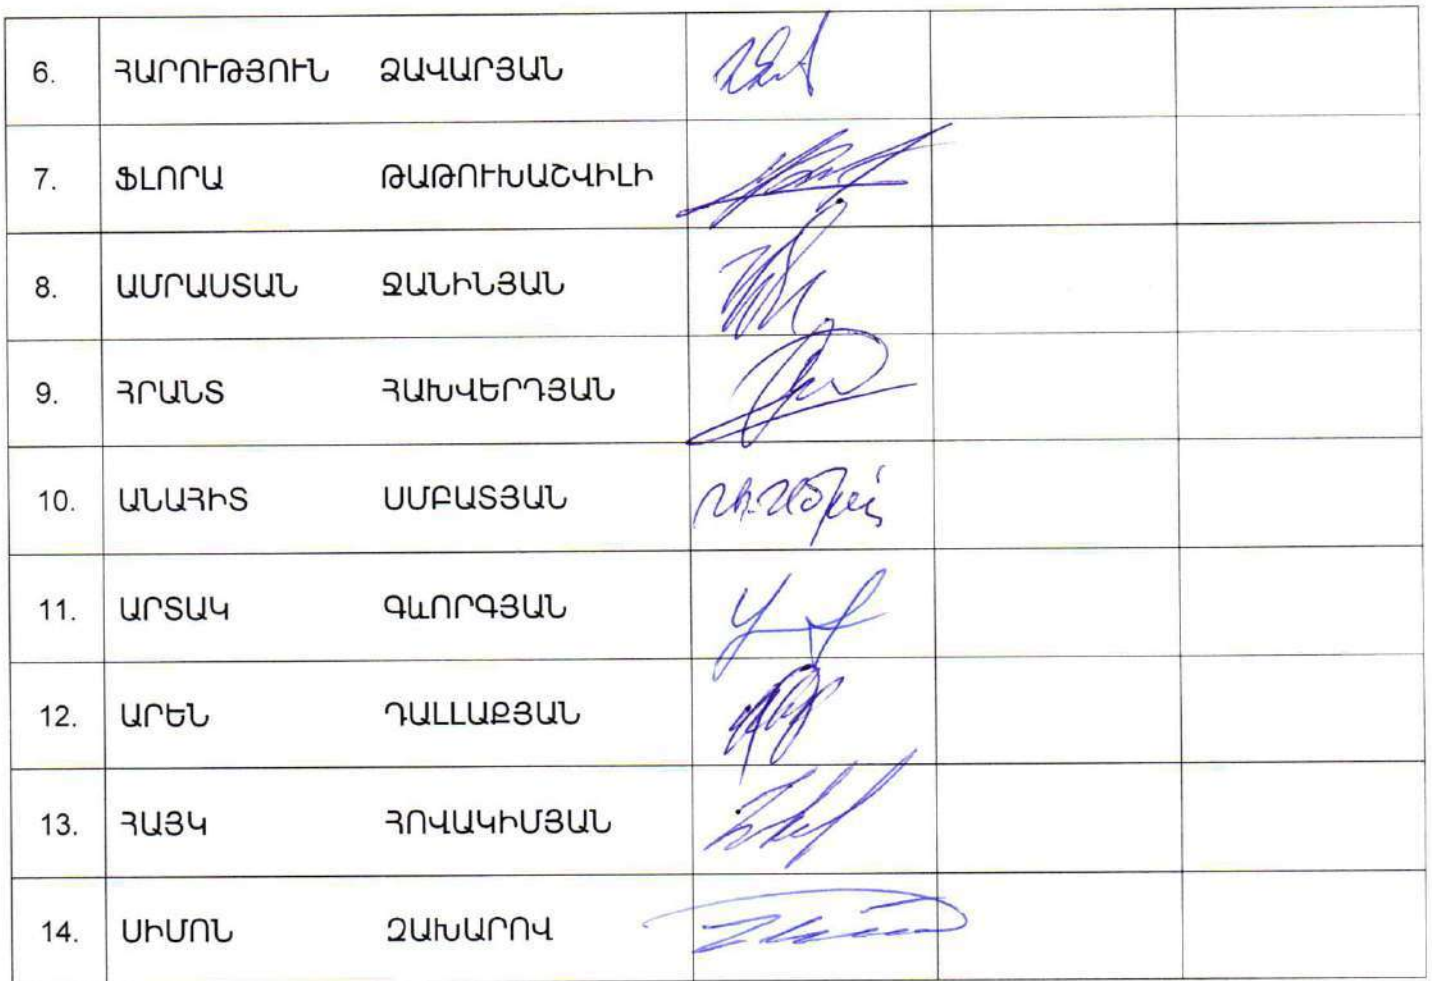 6. ՀԱՐՈՒԹՅՈՒՆ ՁԱՎԱՐՅԱՆ
7. ՖԼՈՐԱ ԹԱԹՈՒԽԱՇՎԻԼԻ
8. ԱՄՐԱՍՏԱՆ ՋԱՆԻՆՅԱՆ
9. ՀՐԱՆՏ ՀԱԽՎԵՐԴՅԱՆ
10. ԱՆԱՀԻՏ ՍՄԲԱՏՅԱՆ
11. ԱՐՏԱԿ ԳևՈՐԳՅԱՆ
12. ԱՐԵՆ ԴԱԼԼԱՔՅԱՆ
13. ՀԱՅԿ ՀՈՎԱԿԻՄՅԱՆ
14. ՍԻՄՈՆ ԶԱԽԱՐՈՎ